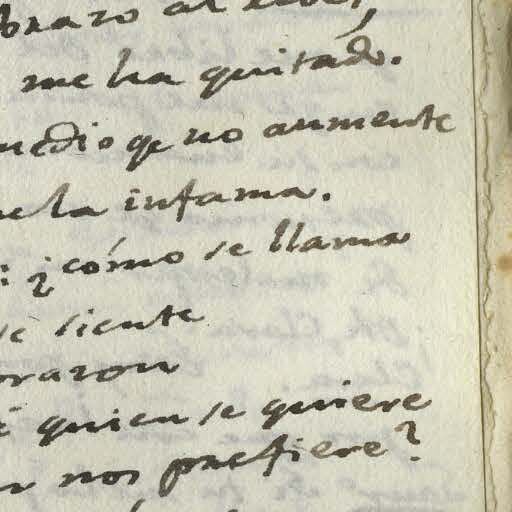 me ha quitado.
medio qe no aumente
la infama.
: ¿cómo se llama
se siente
orazon
quien se quiere
nos prefiere?